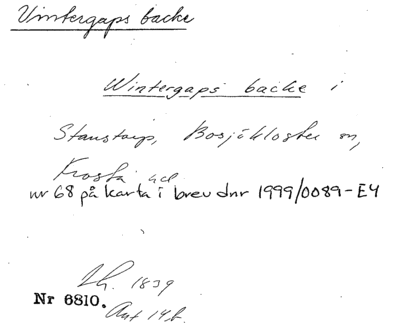 Vintergaps backe
Wintergaps backe i
Stanstorp, Bosjökloster sn,
Frosta hd
nr 68 på karta i brev dnr 1999/0089-E4
Lh. 1839
Nr 6810.
Ant 14 b.